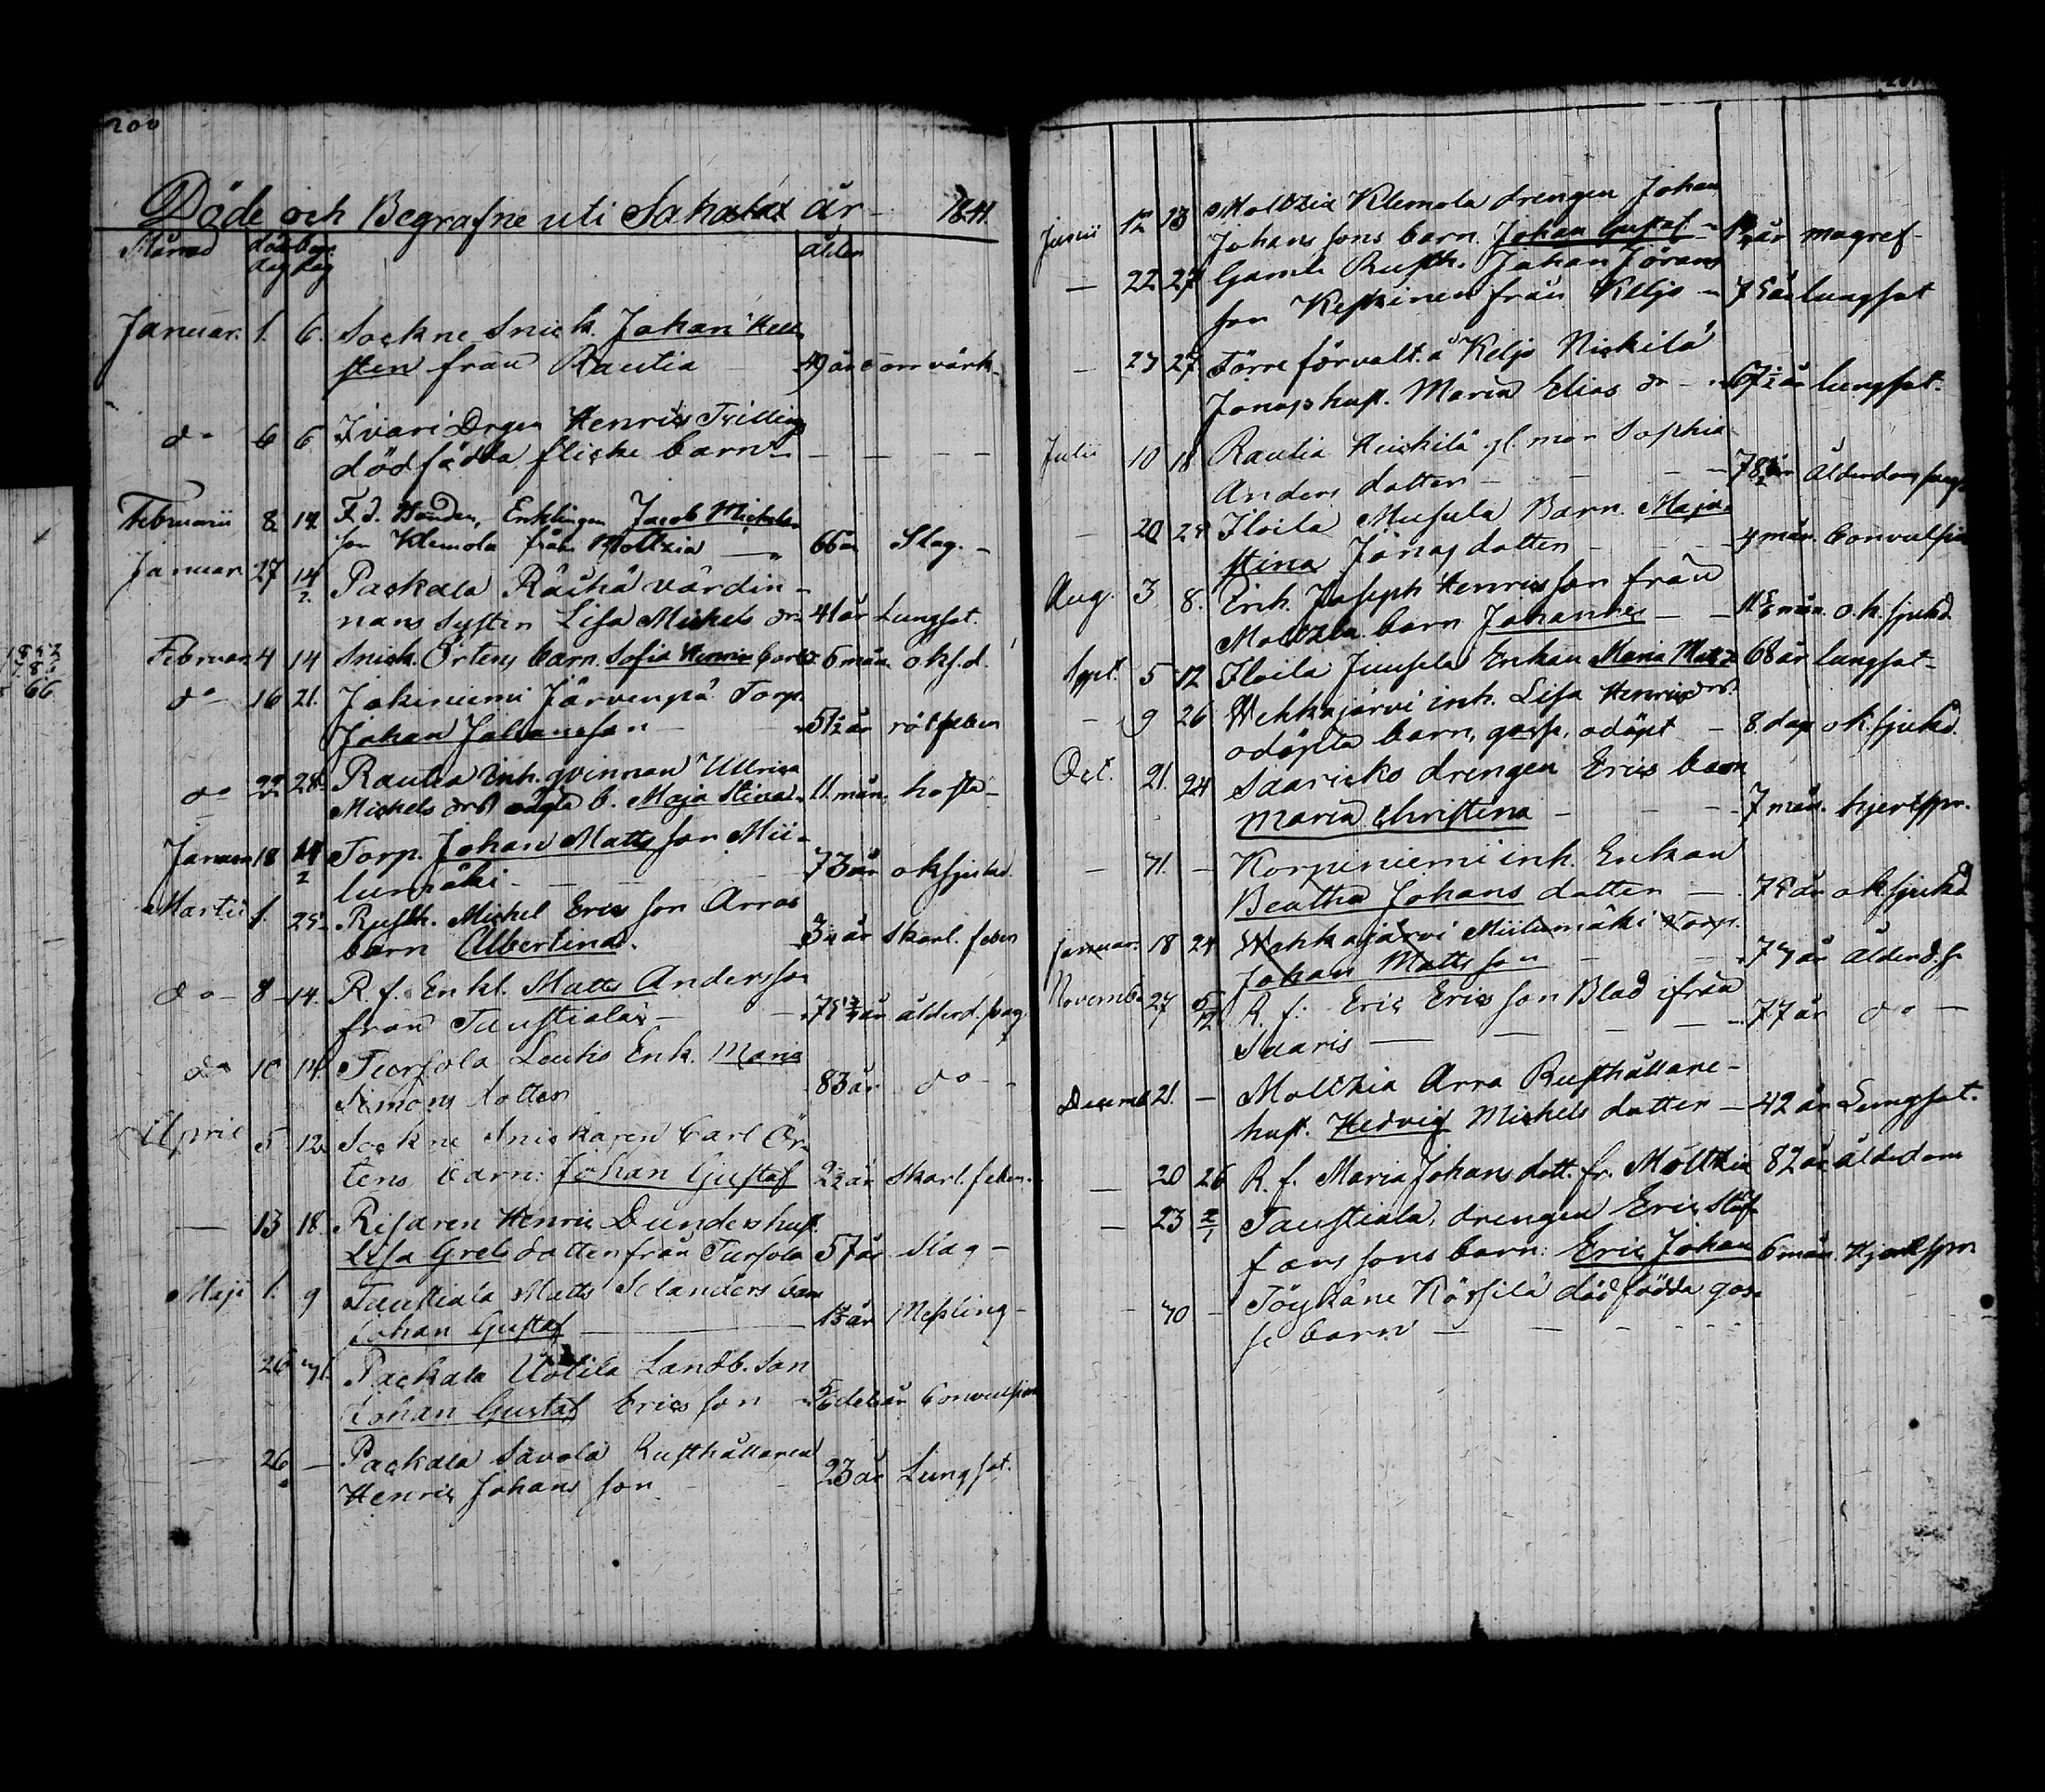 200
Döde och Begrafne uti Sahalax år 1841
Månad döds dag begr. dag ålder
Januar. 1. 6. Sockne Snick. Johan Hell
sten från Rautia 49 år torrvärk
do 6 6 Ivari Drgen Henrics Trilling
dödfödda flicke barn
Februarii 8. 14. F. d. Bonden, Enklingen Jacob Michels
son Klemola från Moltzia 66 år Slag.
Januar. 27 14/2 Packala Räihä värdin-
nans Systер Lisa Michels dr 41 år Lungsot.
Februar. 4 14 Snick. Örtens barn. Sofia Henrica 6 mån. ok. s.d.
do 16 21. Jokiniemi Järvenpä Torp.
Johan Johansson 51½ år rötfeber
do 22 28 Rautia Inh. qvinnan Ullrica
Michels drs oägta b. Maja Stina 11. mån. hosta
Januar. 18 14/2 Torp. Johan Matts son Mii-
lumäki 73 år ok sjukd.
Martii 1. 25 Rusth. Michel Erics son Arras
barn Albertina. 3 år Skarl. feber
do 8 14. R. f. Enkl. Matts Andersson
från Taustiala 75¾ år ålderd. svag
do 10 14. Tursola Leuku Enk. Maria
Simons dotter 83 år do
April 5 12 Sockne Snickaren Carl Ör-
tens barn: Johan Gustaf 2½ år Skarl. feber.
13 18. Risaren Henric Dunders hust.
Lisa Grels dotter från Tursola 57 år Slag
Maji 1. 9 Taustiala Matts Selanders barn
Johan Gustaf 1½ år Messling
26 31. Packala Uotila Landb. Son
Johan Gustaf Erics son Convulsion
26 Packala Savola Rusthållaren
Henric Johans son 23 år Lungsot.
Junii 12 13 Moltzia Klemola drengen Johan
Johans sons barn. Johan Gustaf år magref
22 27 Gamle Rusth. Johan Jörans
son Keskinen från Keljo 75 år lungsot
23 27 Förre förvalt. å Keljo Nickilä
Jonas hust. Maria Elias dr 67½ år lungsot.
Julii 10 18 Rautia Heickilä gl. mor Sophia
Anders dotter 78½ år Ålderdoms svag.
20 25 Iloila Musula Barn. Maja
Stina Jonas dotter 4 mån. Convulsion
Aug. 3 8. Enh. Joseph Henricsson från
Moltzia barn Johannes 11 mån. o.k. sjukd.
Sept. 5 12 Iloila Juusela Enkan Maria Matts dr 68 år lungsot
9 26 Wehkajärvi inh. Lisa Henrics drs.
odöpta barn, gosse, odöpt 8 dag ok. sjukd.
Oct. 21. 24 Saarisko drengen Erics barn
Maria Christina 7 mån. hjertspr.
31. Korpiniemi inh. Enkan
Beatha Johans dotter 75 år ok. sjukd
Januar. 18 24 Wehkajärvi Miilumäki Torp.
Johan Matts son 73 år ålderd. s.
Novemb. 27 5/12 R. f. Eric Ericsson Blad ifrån
Saaris 77 år do
Decemb. 21. Moltzia Arra Rusthållare
hust. Hedvig Michels dotter 42 år Lungsot.
20 26 R. f. Maria Johans dott. fr. Moltzia 82 år ålderdom
23 2/1 Taustiala, drengen Eric Staf
fans sons barn: Eric Johan 6 mån. Hjertspr
30 Töykäne Kössilä dödfödda gos-
se barn